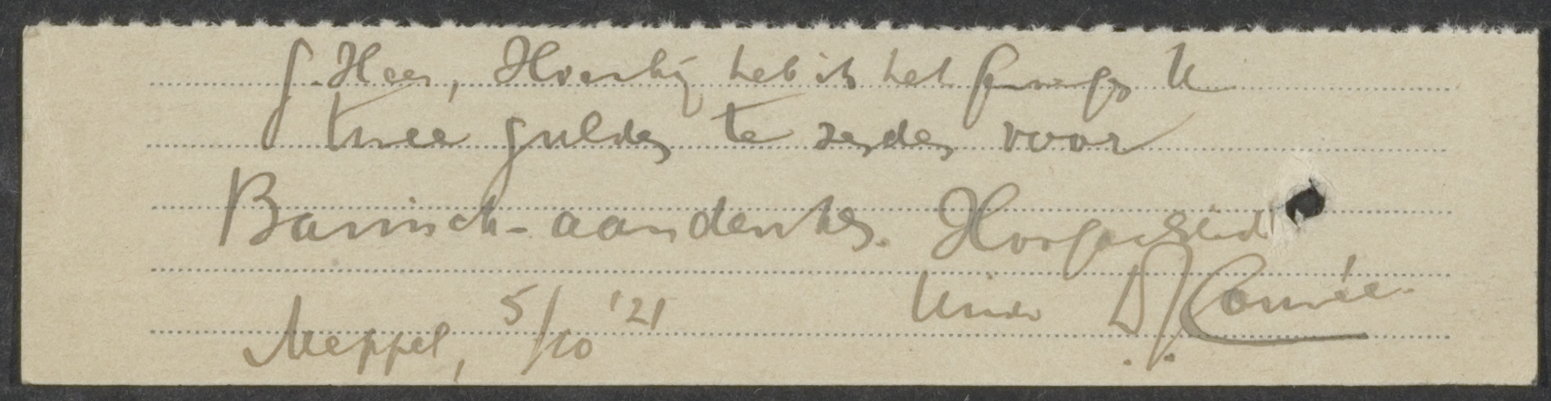 G. Heer, Hierbij heb ik het genoegen U
twee gulden te zenden voor
Bavinck-aandenken. Hoogachtend
Meppel, 5/10 '21 Uwdw D.J. Couvée.